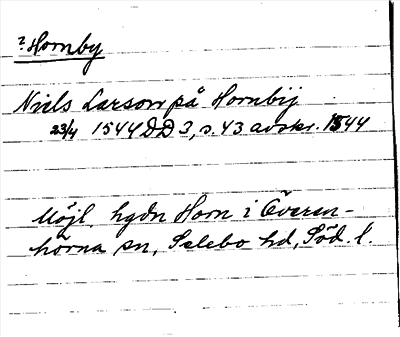 ? Hornby
Niels Larson på Hornbij
23/4 1544 DD 3, s. 43 avskr. 1544
Möjl. hgdn Horn i Överen-
hörna sn, Selebo hd, Söd. l.